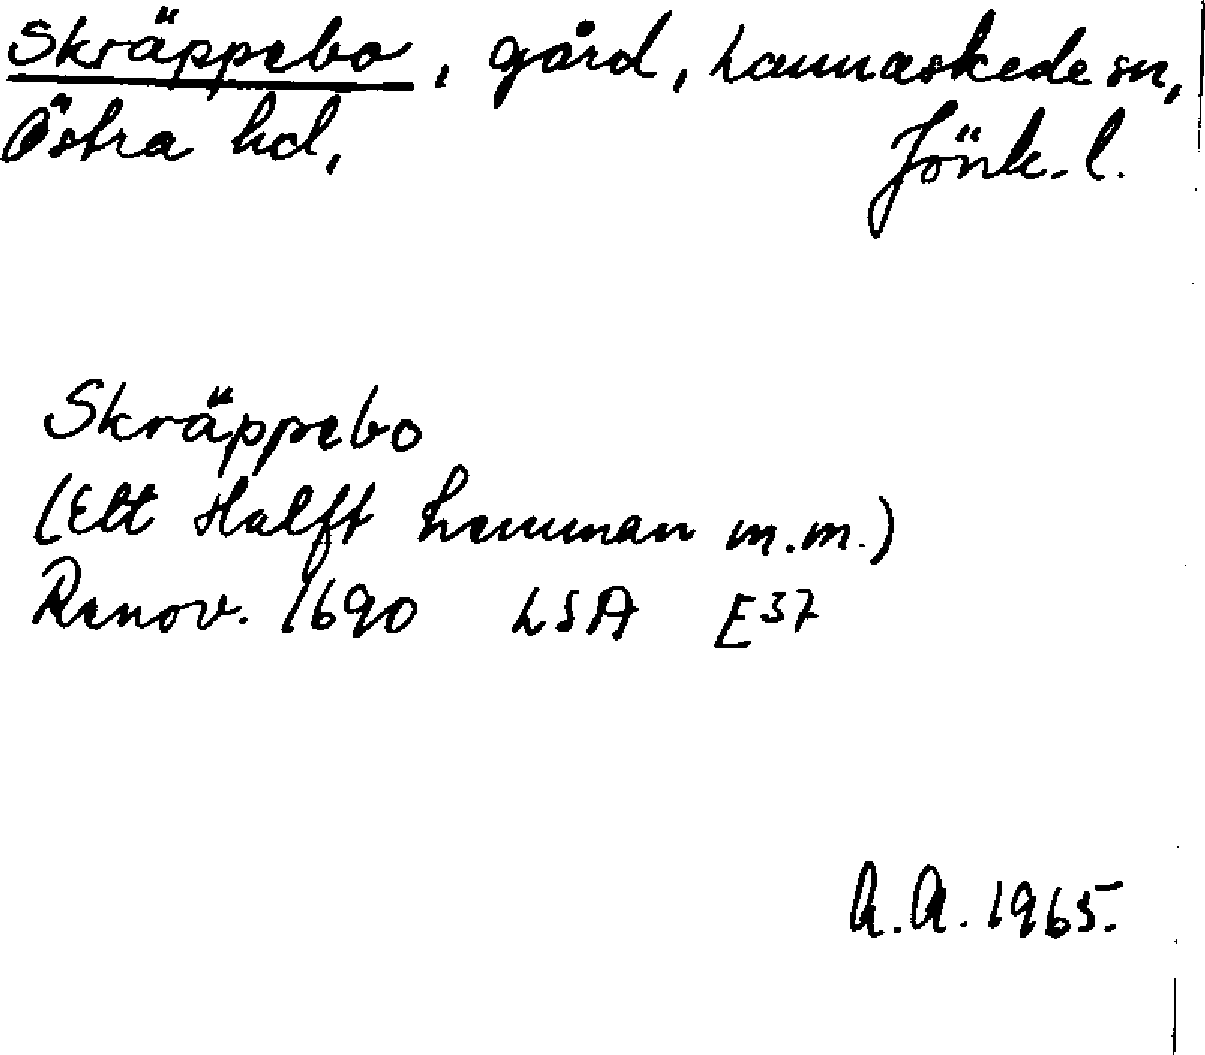 Skräppebo, gård, Lannaskede sn,
Östra hd, Jönk. l.
Skräppebo
(Ett Halft hemman m.m.)
Renov. 1690 LSA E37
A.A. 1965.